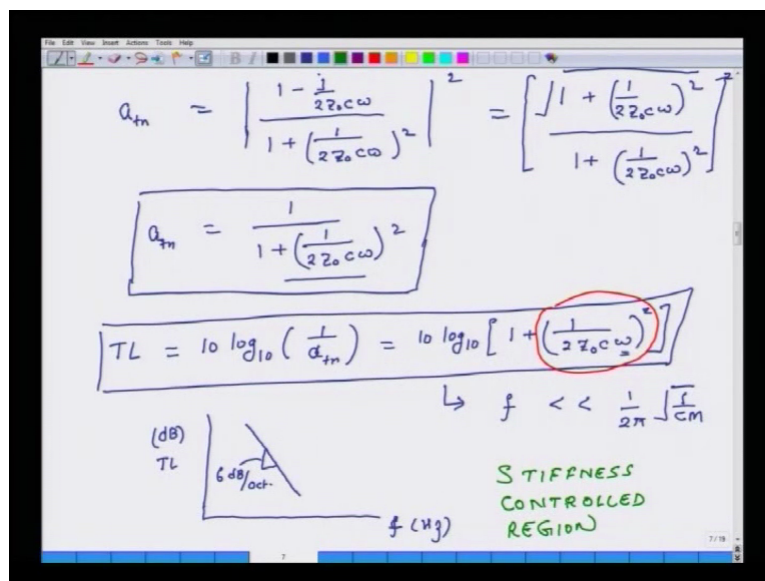 File Edit View Insert Actions Tools Help
a_tn = | (1 - j/(2Z₀cω)) / (1 + (1/(2Z₀cω))²) |² = [ √(1 + (1/(2Z₀cω))²) / (1 + (1/(2Z₀cω))²) ]²
a_tn = 1 / (1 + (1/(2Z₀cω))²)
TL = 10 log₁₀ (1/α_tn) = 10 log₁₀ [1 + (1/(2Z₀cω))²]
↳ f << 1/2π √(1/CM)
(dB)
TL
6 dB/oct.
f (Hz)
STIFFNESS
CONTROLLED
REGION
7/19
7